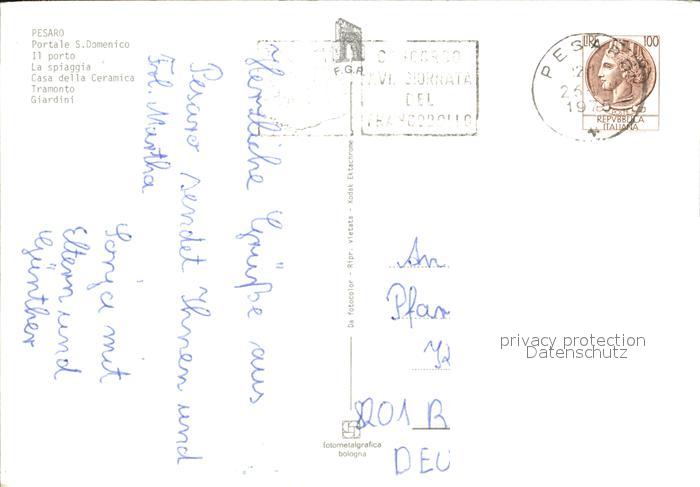 PESARO
Portale S.Domenico
Il porto
La spiaggia
Casa della Ceramica
Tramonto
Giardini
F.G.R.
CONCORSO
XVI GIORNATA
DEL
FRANCOBOLLO
PESARO
LIRE 100
REPVBBLICA
ITALIANA
Herzliche Grüße aus
Pesaro sendet Ihnen und
Frl. Martha
Sonja mit
Eltern und
Günther
Da fotocolor - Ripr. vietata - Kodak Ektachrome
fotometalgrafica
bologna
An
Pfar
8201 R
DEU
privacy protection
Datenschutz